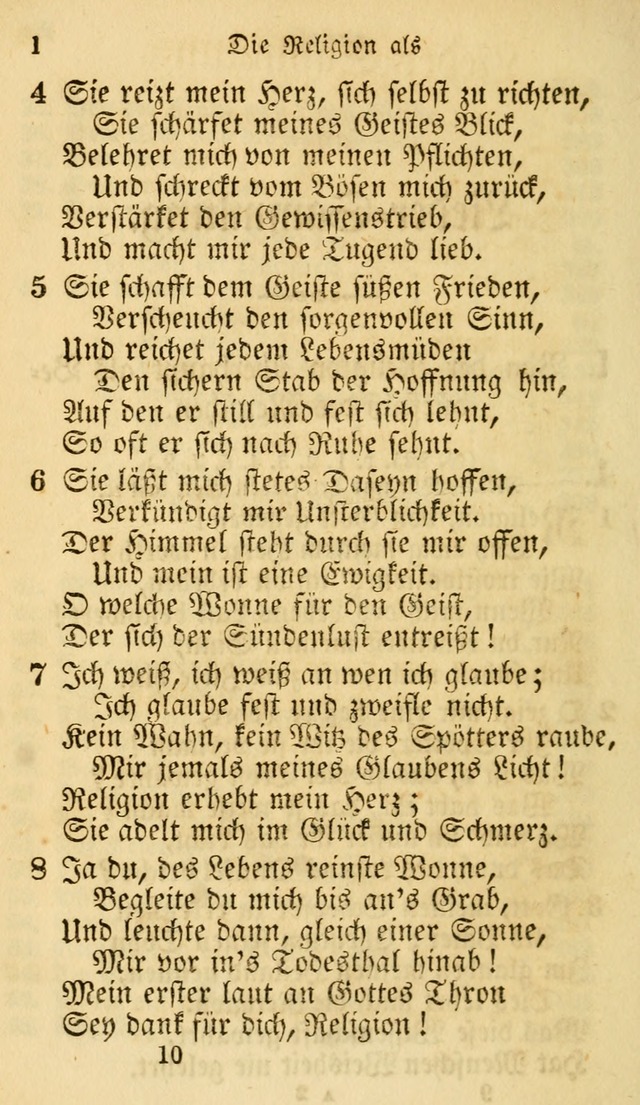 1 Die Religion als
4 Sie reizt mein Herz, sich selbst zu richten,
Sie schärfet meines Geistes Blick,
Belehret mich von meinen Pflichten,
Und schreckt vom Bösen mich zurück,
Verstärket den Gewissenstrieb,
Und macht mir jede Tugend lieb.
5 Sie schafft dem Geiste süßen Frieden,
Verscheucht den sorgenvollen Sinn,
Und reichet jedem Lebensmüden
Den sichern Stab der Hoffnung hin,
Auf den er still und fest sich lehnt,
So oft er sich nach Ruhe sehnt.
6 Sie läßt mich stetes Daseyn hoffen,
Verkündigt mir Unsterblichkeit.
Der Himmel steht durch sie mir offen,
Und mein ist eine Ewigkeit.
O welche Wonne für den Geist,
Der sich der Sündenlust entreißt!
7 Ich weiß, ich weiß an wen ich glaube;
Ich glaube fest und zweifle nicht.
Kein Wahn, kein Witz des Spötters raube,
Mir jemals meines Glaubens Licht!
Religion erhebt mein Herz;
Sie adelt mich im Glück und Schmerz.
8 Ja du, des Lebens reinste Wonne,
Begleite du mich bis an's Grab,
Und leuchte dann, gleich einer Sonne,
Mir vor in's Todesthal hinab!
Mein erster laut an Gottes Thron
Sey dank für dich, Religion!
10